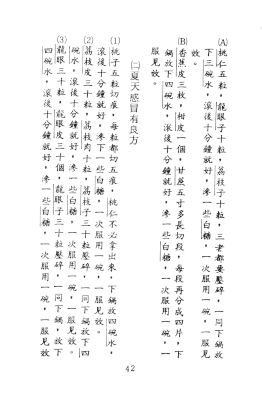 (A)桃仁五粒，龍眼子十粒，荔枝子十粒，三者都要壓碎，一同下鍋放
下三碗水，滾後十分鐘就好，滲下一些白糖，一次服用一碗，一服見
效。
(B)香蕉皮三枚，柑皮一個，甘蔗五寸多長切段，每段再分成四片，下
鍋放下四碗水，滾後十分鐘就好，滲一些白糖，一次服用一碗，一
服見效。
㈡夏天感冒有良方
(1)桃子五粒切痕，每粒都切五痕，桃仁不必拿出來，下鍋放四碗水，
滾後十分鐘就好，滲一些白糖，一次服用一碗，一服見效。
(2)荔枝皮三十粒，荔枝肉十粒，荔枝子三十粒壓碎，一同下鍋放下四
碗水，滾後十分鐘就好，滲一些白糖，一次服用一碗，一服見效。
(3)龍眼三十粒，龍眼皮三十個，龍眼子三十粒壓碎，一同下鍋，放下
四碗水，滾後十分鐘就好，滲一些白糖，一次服用一碗，一服見效
42